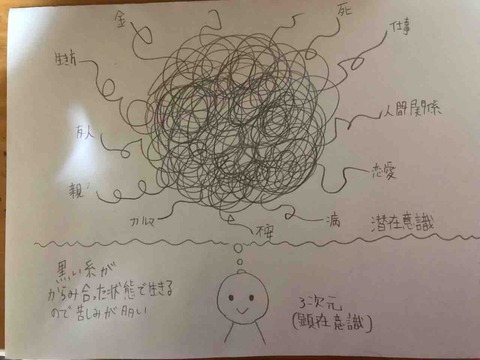 金
死
仕事
生き方
人間関係
友人
恋愛
親
カルマ
病
潜在意識
黒い糸が
からみ合った状態で生きる
ので苦しみが多い
3次元
(顕在意識)